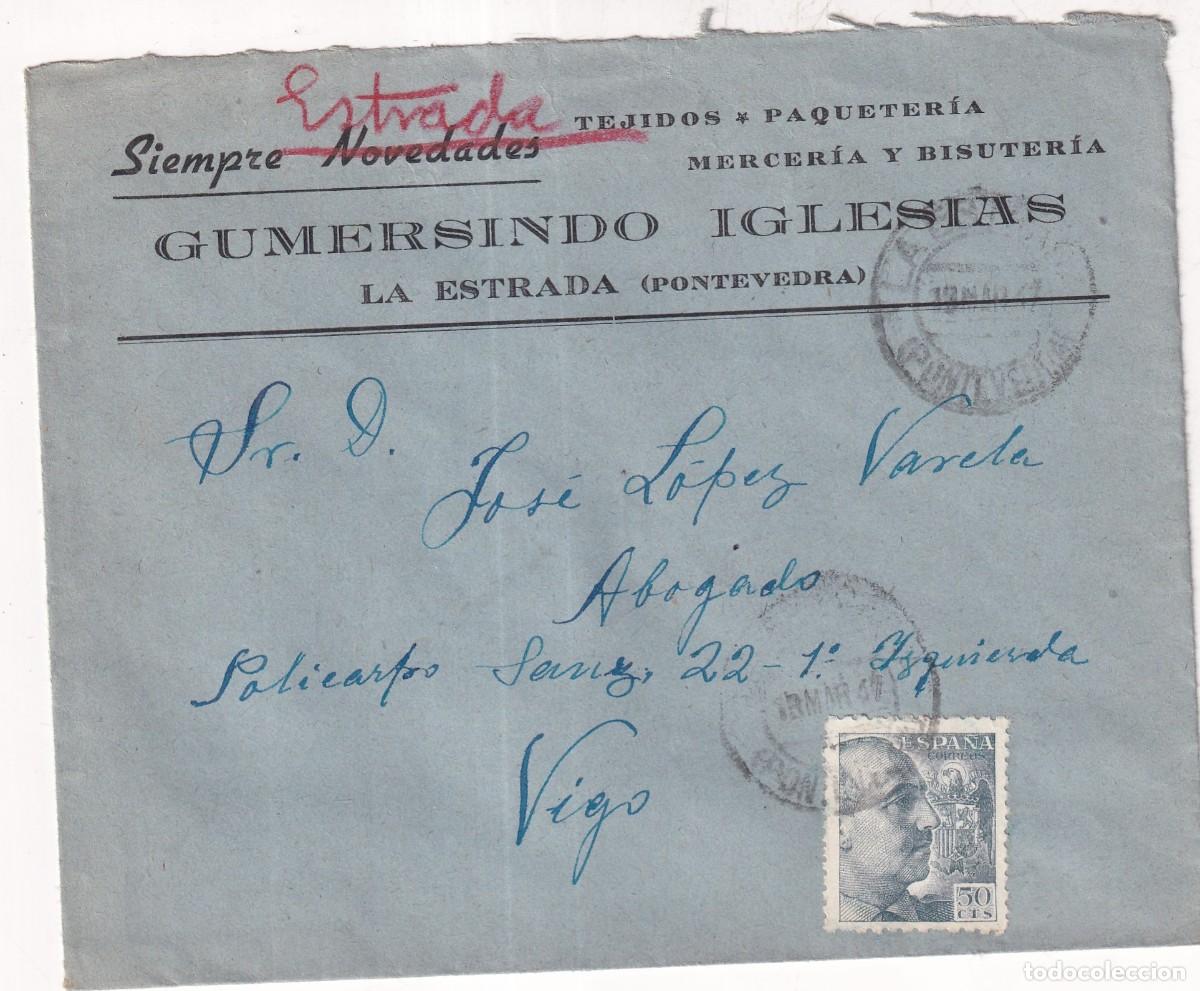 Estrada
TEJIDOS * PAQUETERÍA
Siempre Novedades
MERCERÍA Y BISUTERÍA
GUMERSINDO IGLESIAS
LA ESTRADA (PONTEVEDRA)
MAR 47
Sr. D.
José López Varela
Abogado
Policarpo Sanz, 22-1º Izquierda
18 MAR 47
Vigo
ESPAÑA
CORREOS
50
CTS
todocoleccion